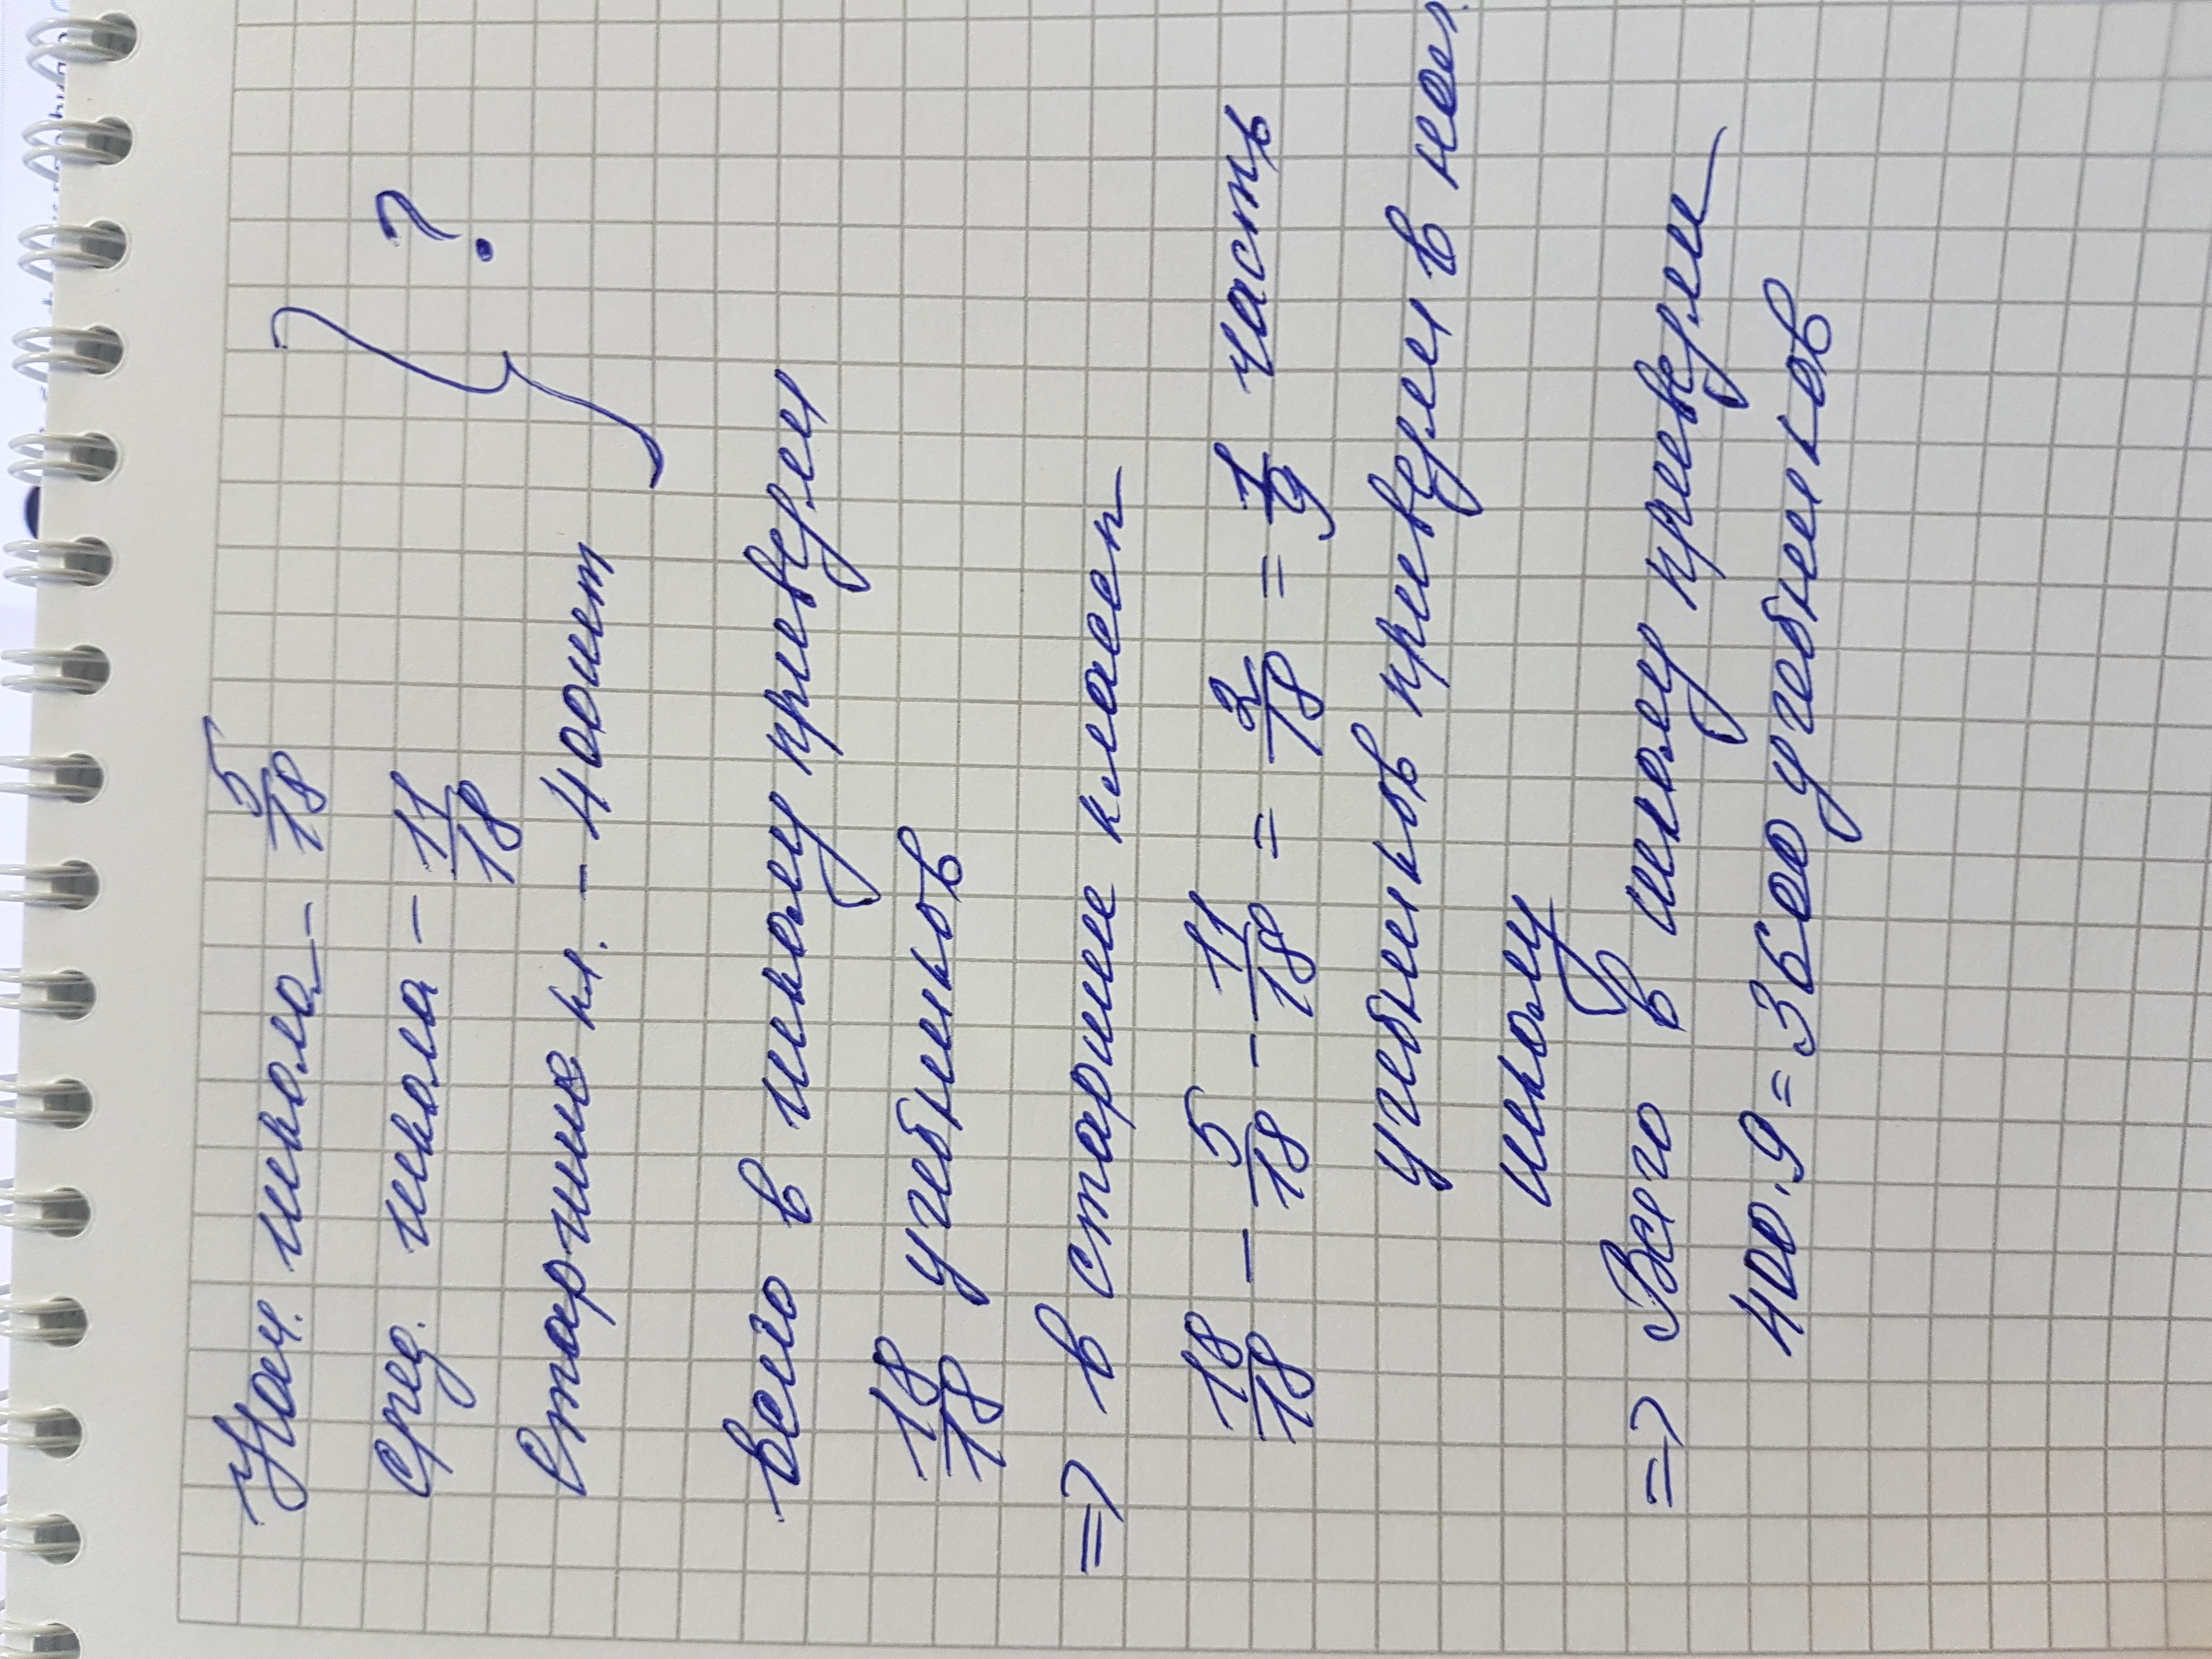 Нач. школа - 5/18
сред. школа - 11/18
Старшие кл. - 400шт
} ?
Всего в школу привезли
18/18 учебников
=> в старшие классы
18/18 - 5/18 - 11/18 = 2/18 = 1/9 часть
учебников привезли в
школу
=> Всего в школу привезли
400·9=3600 учебников